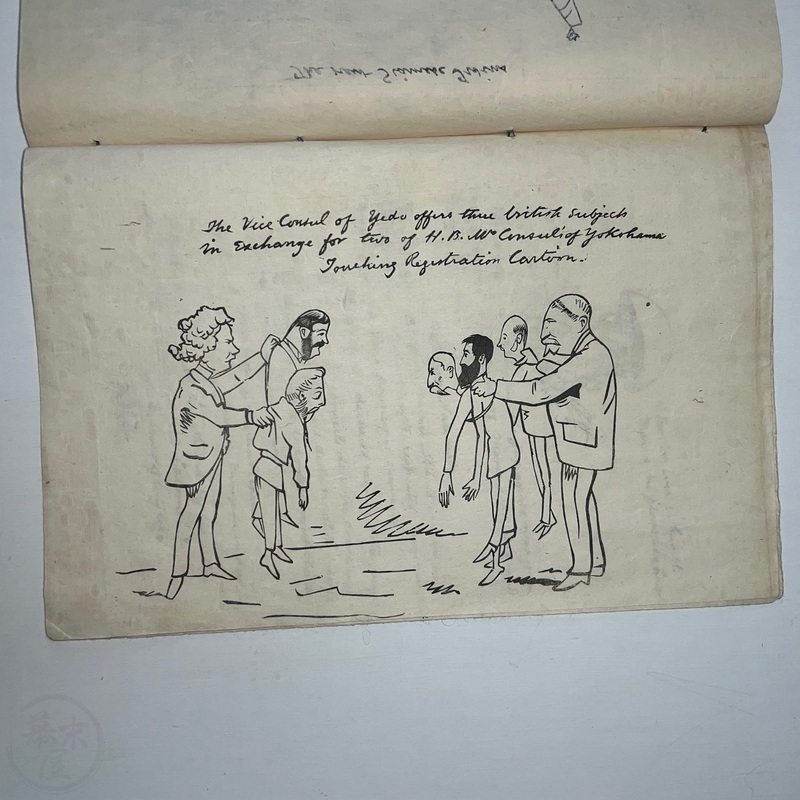 The next Siamese Twins
The Vice Consul of Yedo offers three british Subjects
in Exchange for two of H. B. Ms Consuls of Yokohama
Touching Registration Cartoon.
幕末屋